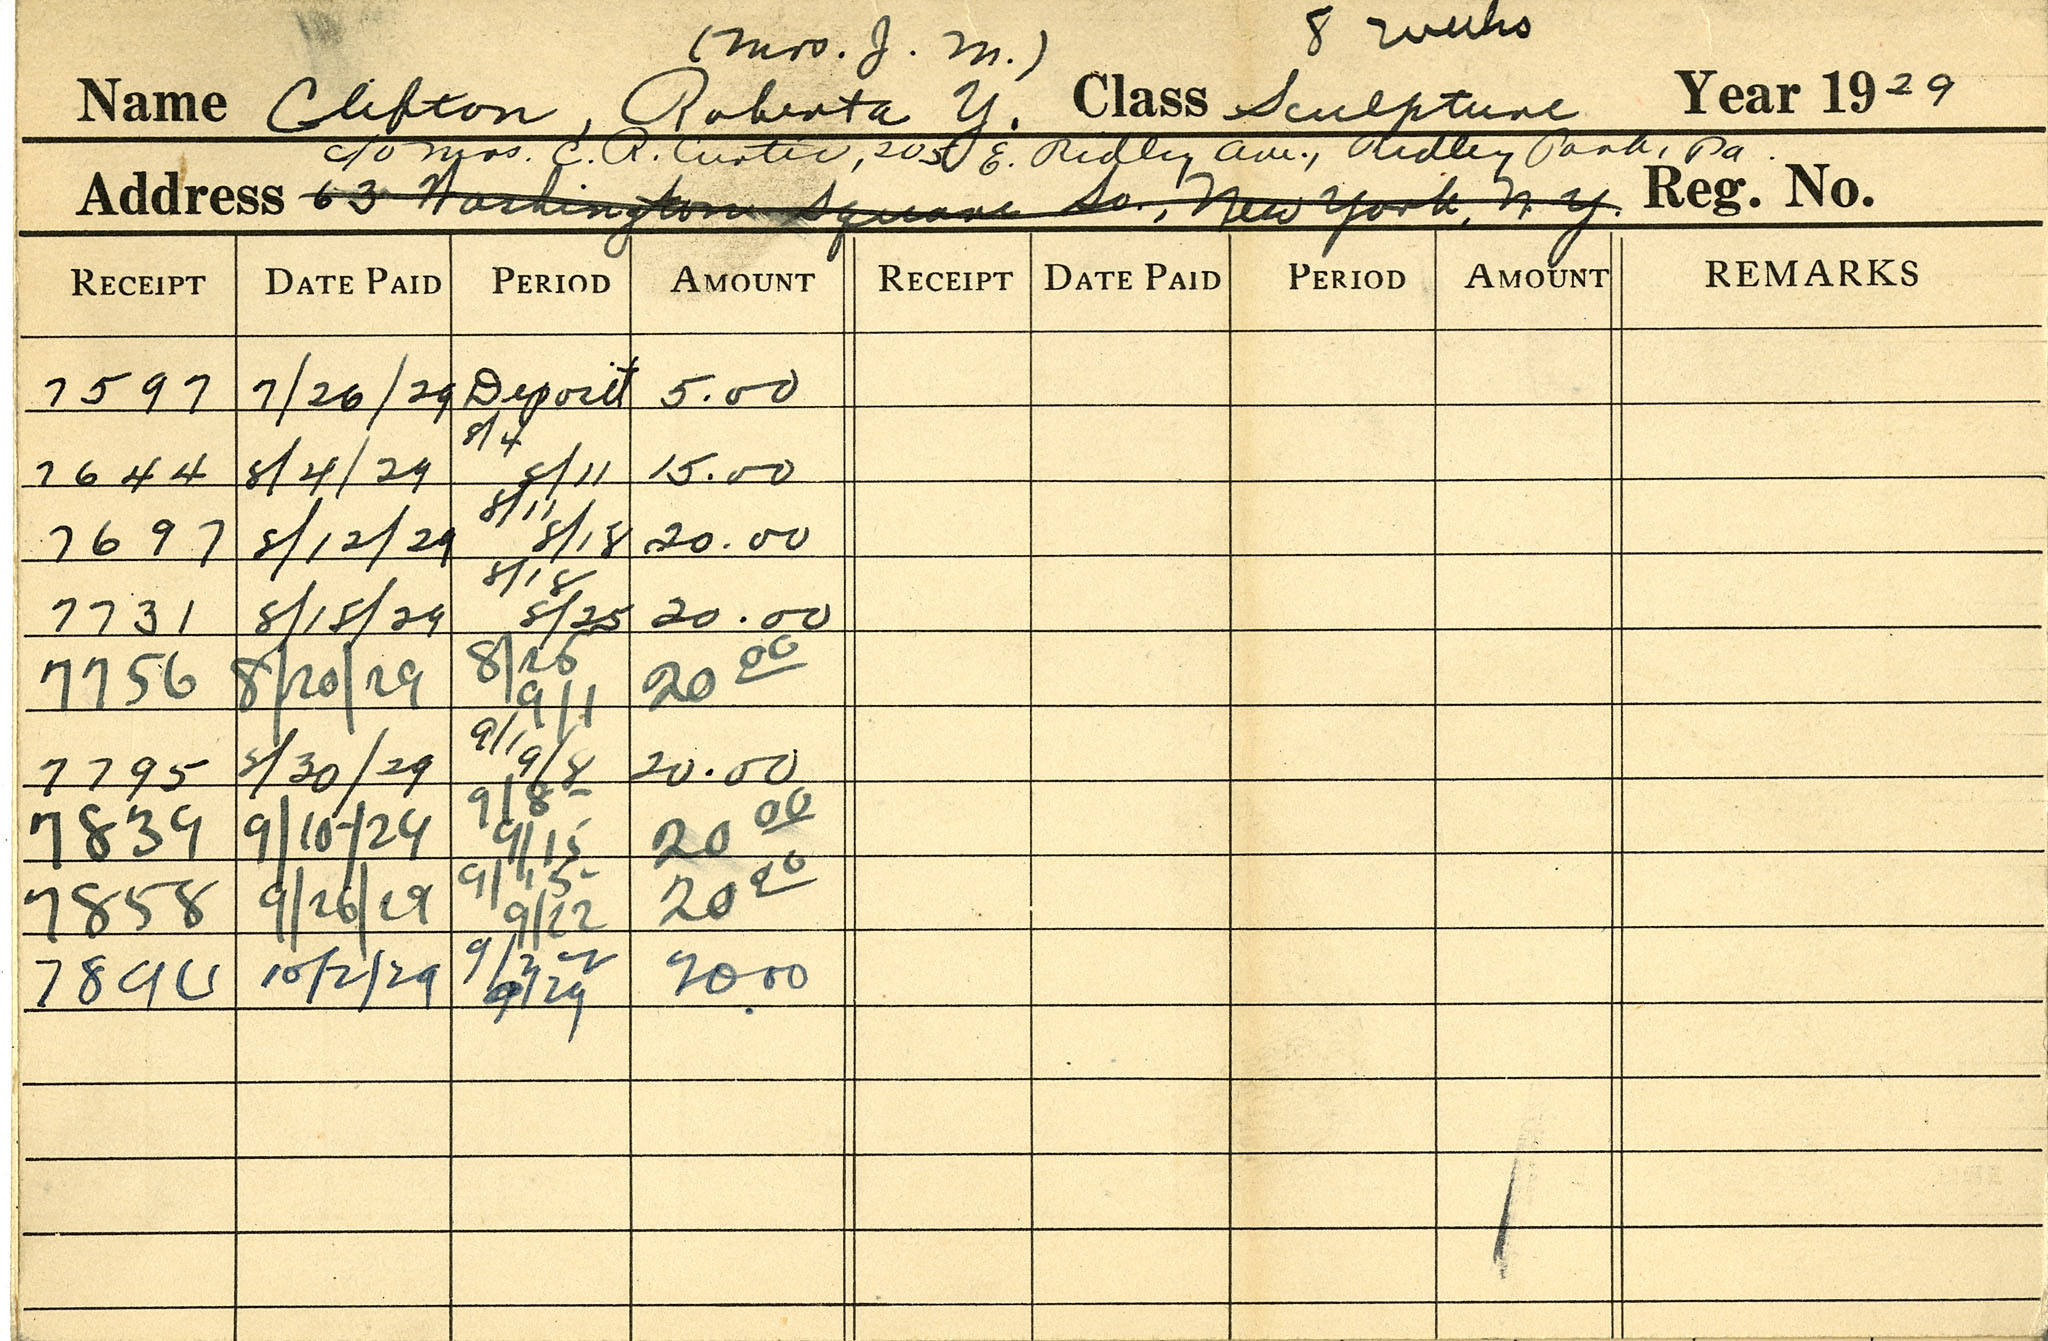 (Mrs. J. M.) 8 weeks
Name Clifton, Roberta Y. Class Sculpture Year 1929
c/o Mrs. C. R. Curtis, 205 E. Ridley Ave., Ridley Park, Pa.
Address 63 Washington Square So., New York, N.Y. Reg. No.
RECEIPT DATE PAID PERIOD AMOUNT RECEIPT DATE PAID PERIOD AMOUNT REMARKS
7597 7/26/29 Deposit 5.00
8/4
7644 8/4/29 8/11 15.00
8/11
7697 8/12/29 8/18 20.00
8/18
7731 8/15/29 8/25 20.00
8/25
7756 8/20/29 9/1 20 00
9/1
7795 8/30/29 9/8 20.00
9/8
7839 9/10/29 9/15 20 00
9/15
7858 9/26/29 9/22 20 00
9/22
10/2/29 9/29 20.00